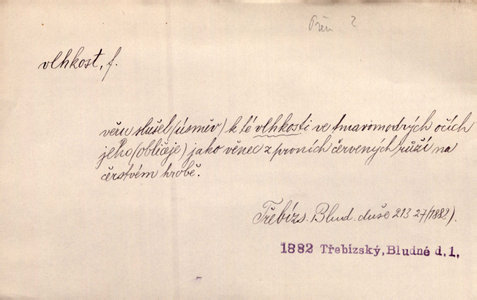 Přen ?
vlhkost, f.
věru slušel (úsměv) k té vlhkosti ve tmavomodrých očích
jeho (obličeje) jako věnec z prvních červených růží na
čerstvém hrobě.
Třebízs. Blud. duše 213 27 (1882).
1882 Třebízský, Bludné d. 1.